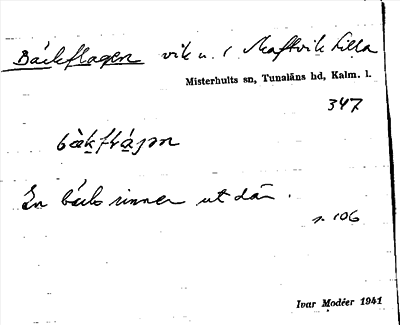 Bäckflagen vik u. / Skaftvik Lilla
Misterhults sn, Tunaläns hd, Kalm. l.
347
En bäck rinner ut där.
s. 106
Ivar Modéer 1941